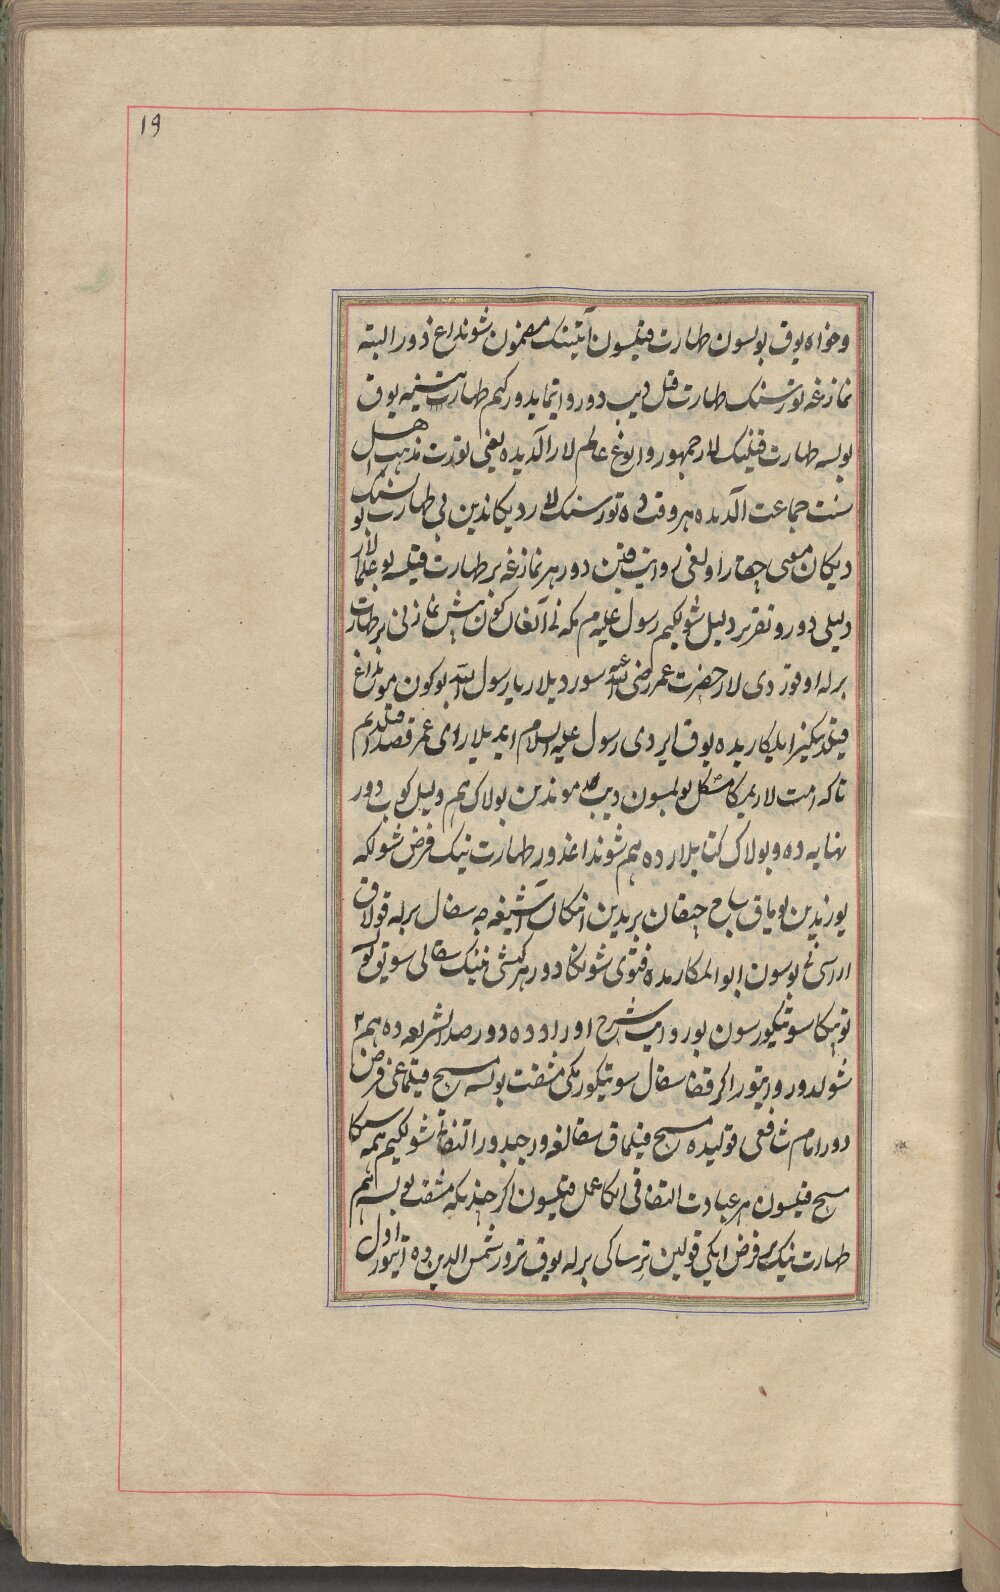 ۱۹
وخواه یوق بولسون طهارت قیلسون آیتینک مضمون شونداغ ذور البته
نمازغه تورسنک طهارت قیل دیب دور و ایتمایدور کیم طهارتینکیز یوق
بولسه طهارت قیلینک لار جمهور و اولوغ عالم لار آلدیده یعنی تورت مذهب اهل
سنت جماعت آلدیده هر وقت ده تورسنک لار دیکاندین بی طهارت بولسنک
دیکان معنی چقار اولغی روایت قیلن دور هر نمازغه بر طهارت قیلسه بو علمالار
دلیلی دور و تقریر دلیل شولکیم رسول علیه م مکه نی آلغان کون بیش نمازنی بر طهارت
برله اوقور دی لار حضرت عمر رضی الله عنه سوردیلار یا رسول الله بو کون مونداغ
قیلدینکیز ایلکاریده یوق ایردی رسول علیه السلام ایدیلار ای عمر قصدا قیلدیم
تاکه امت لاریمکا مشکل بولمسون دیب موندین بولاک هم دلیل کوب دور
نهایه ده و بولاک کتابلارده هم شونداغدور طهارت نینک فرض شولکه
یوزیدین بویاق ساچ چیققان یریدین انکاک آستیغه چه سقال برله قولاق
اراسی نی یوسون ابوالمکارمده فتوی شونکا دور هر کیشی نینک سقالی سویق کوب
توبیکا سو تیکورسون بو روایت شرح اوراد ده دور صدر الشریعه ده هم
شولدور و ایتور اکر قضا سقال سو تیکورمکی مشقت بولسه مسح قیلماغی فرض
دور امام شافعی قولیده مسح قیلماق سقالغه ورجبدور اتفاق شولکیم همه سیکا
مسح قیلسون هر عبادت اتفاقی انکا عمل قیلسون اکر چندیکه مشقت بولسه هم
طهارت نینک بر فرض ایکی قولین ترساکی برله یوق ترور شمس الدین ده ایتور اول